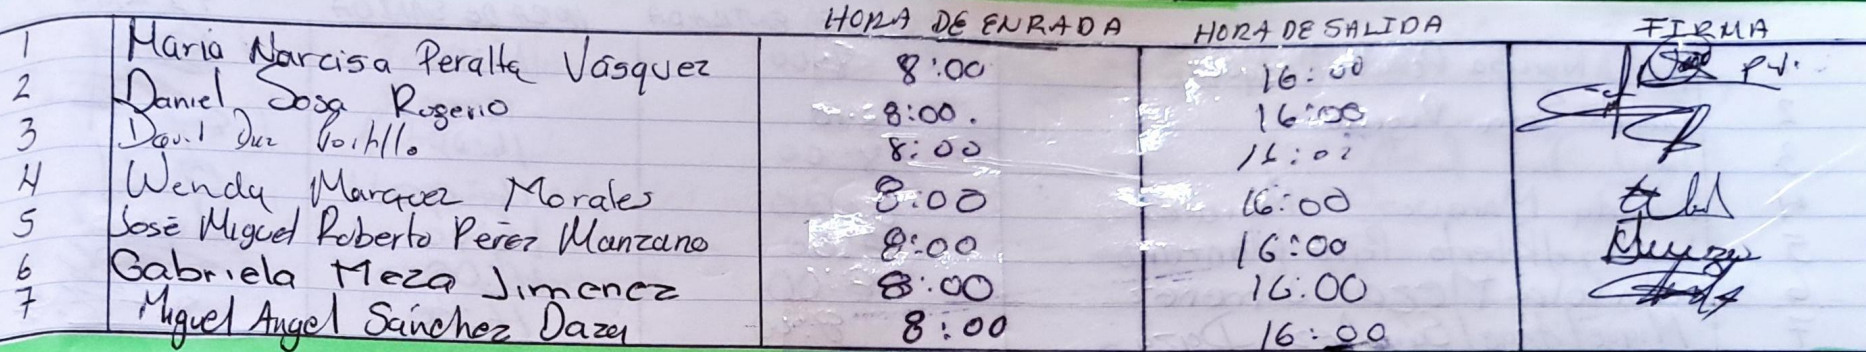 HORA DE ENRADA HORA DE SALIDA FIRMA
1 Maria Narcisa Peralta Vásquez 8:00 16:00
2 Daniel Sosa Rogerio 8:00. 16:00
3 8:00
4 Wendy Marquez Morales 8:00 16:00
5 José Miguel Roberto Peréz Manzano 8:00 16:00
6 Gabriela Meza Jimenez 8:00 16:00
7 Miguel Angel Sánchez Daza 8:00 16:00